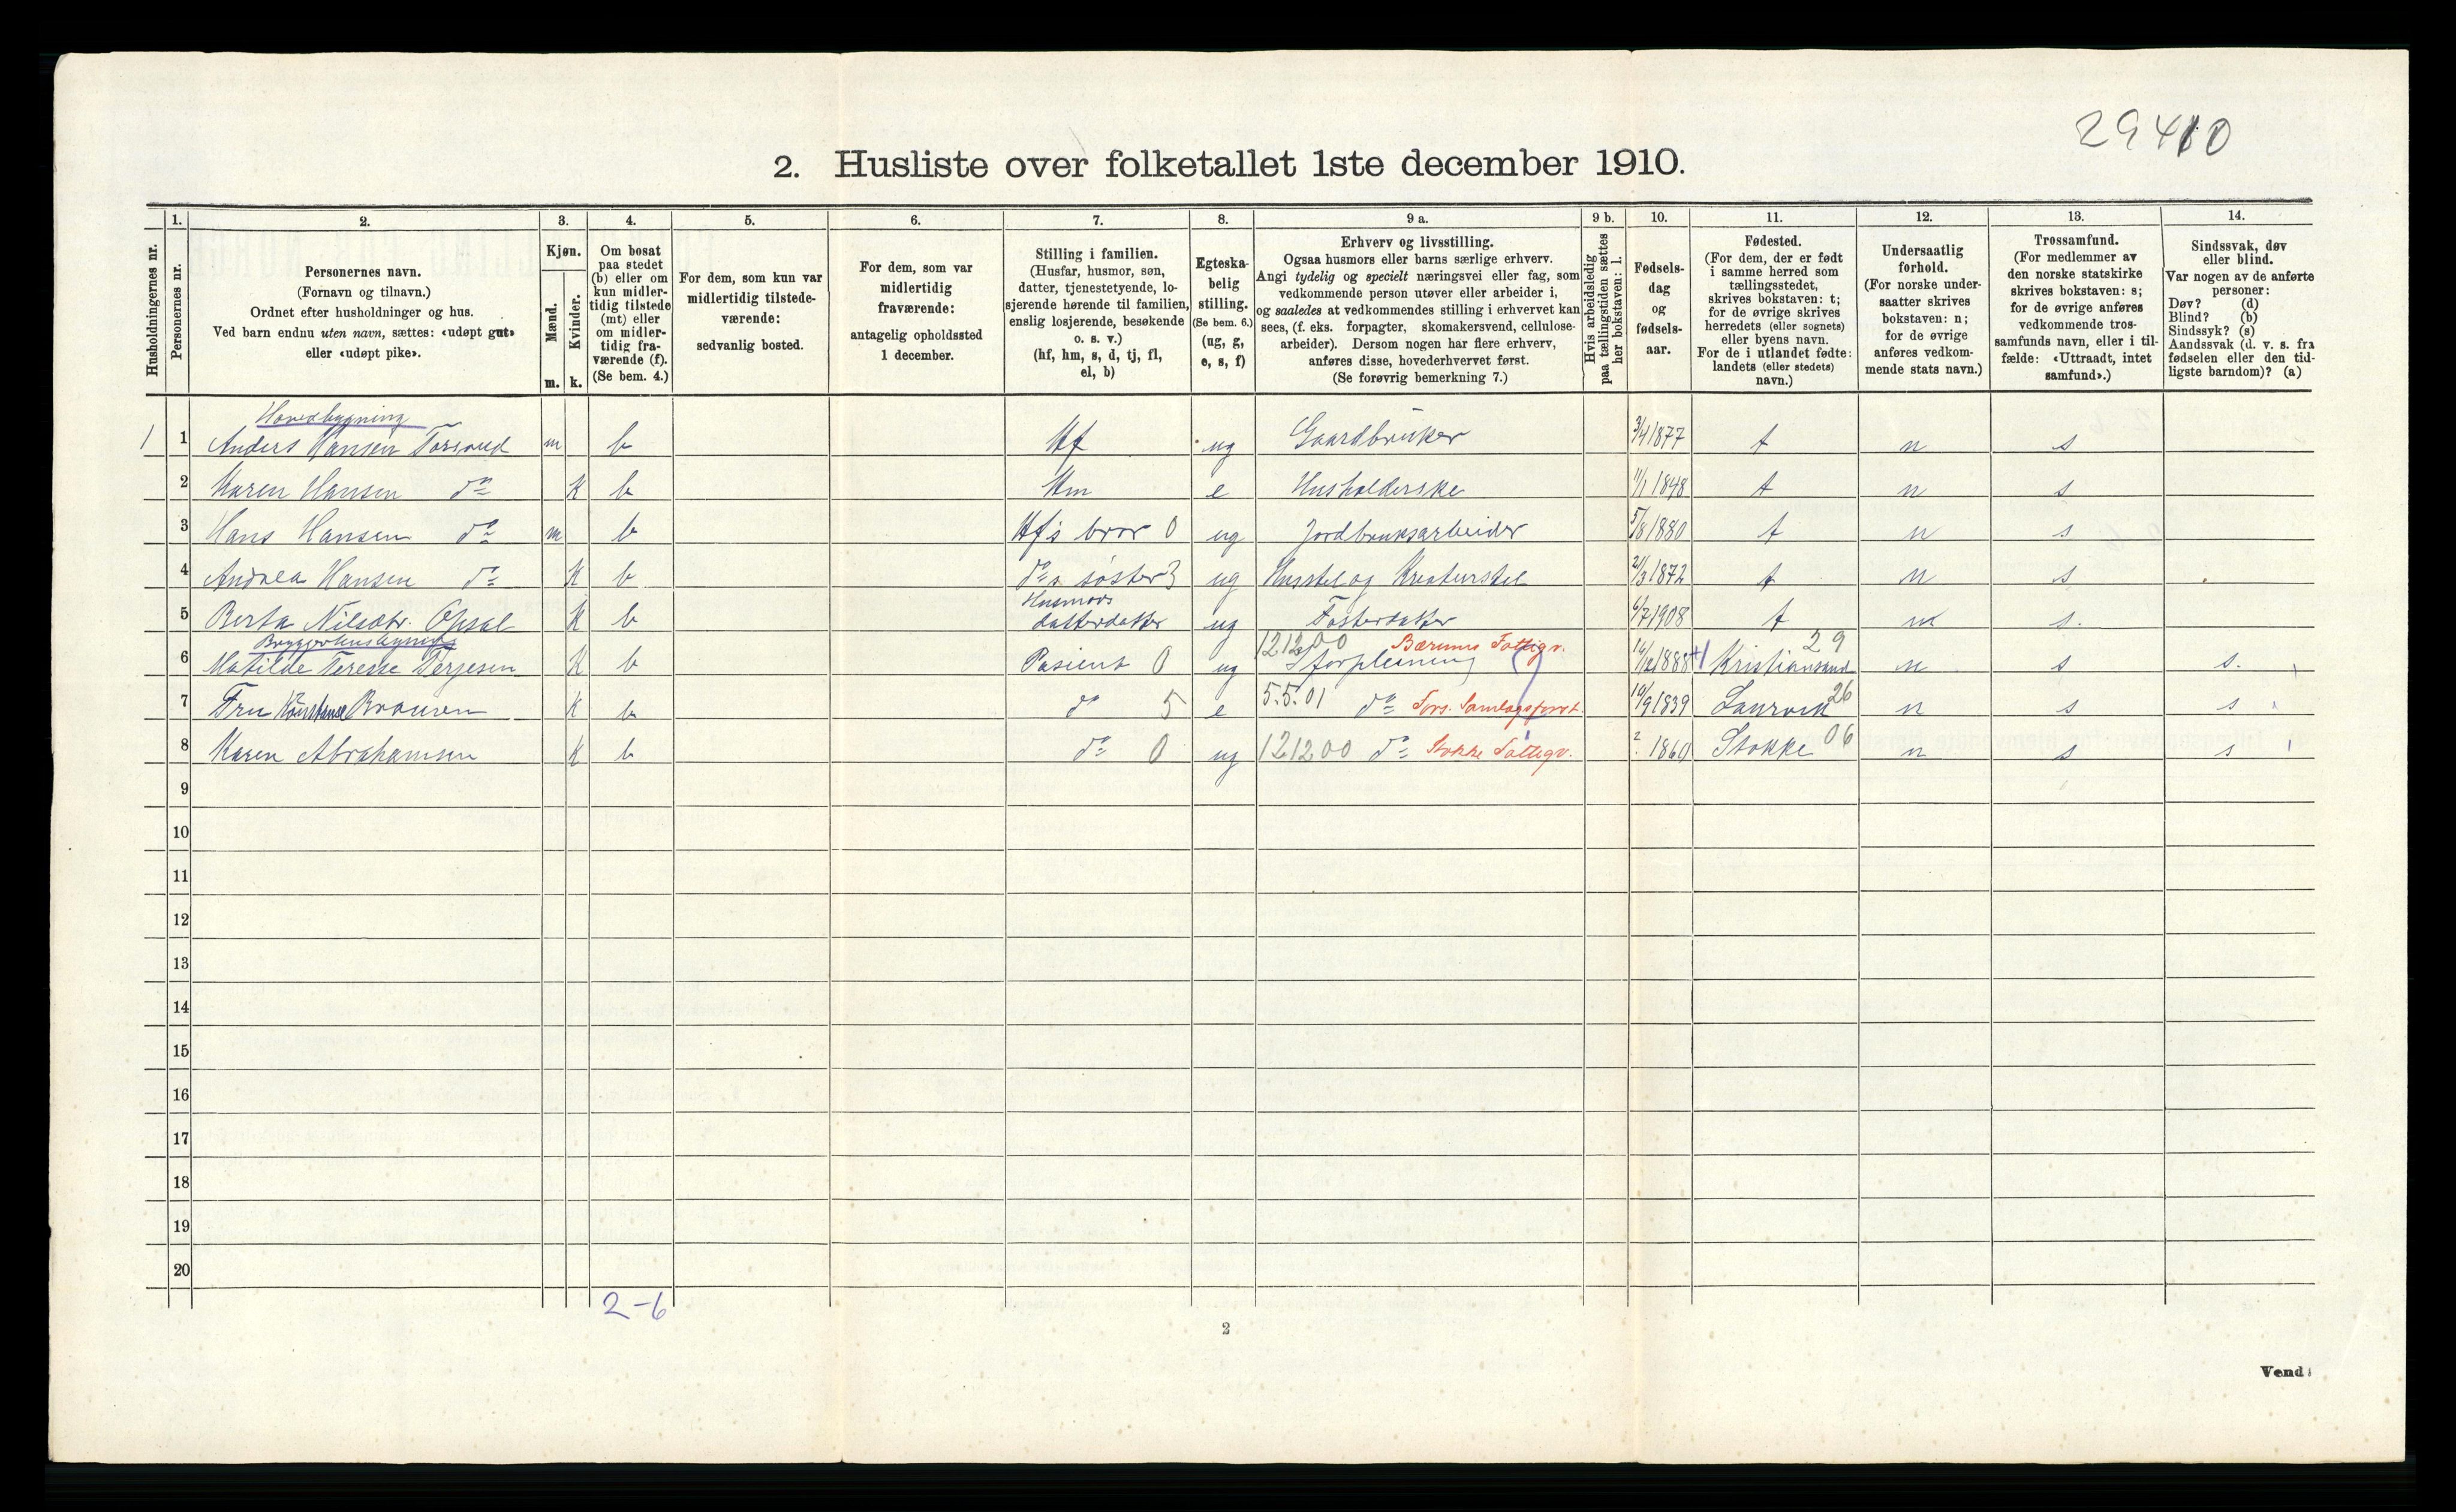 29410
2. Husliste over folketallet 1ste december 1910.
Husholdningernes nr.
1.
Personernes nr.
2.
Personernes navn.
(Fornavn og tilnavn.)
Ordnet efter husholdninger og hus.
Ved barn endnu uten navn, sættes: «udøpt gut»
eller «udøpt pike».
3.
Kjøn.
Mænd.
Kvinder.
m. k.
4.
Om bosat
paa stedet
(b) eller om
kun midler-
tidig tilstede
(mt) eller
om midler-
tidig fra-
værende (f).
(Se bem. 4.)
5.
For dem, som kun var
midlertidig tilstede-
værende:
sedvanlig bosted.
6.
For dem, som var
midlertidig
fraværende:
antagelig opholdssted
1 december.
7.
Stilling i familien.
(Husfar, husmor, søn,
datter, tjenestetyende, lo-
sjerende hørende til familien,
enslig losjerende, besøkende
o. s. v.)
(hf, hm, s, d, tj, fl,
el, b)
8.
Egteska-
belig
stilling.
(Se bem. 6.)
(ug, g,
e, s, f)
9 a.
Erhverv og livsstilling.
Ogsaa husmors eller barns særlige erhverv.
Angi tydelig og specielt næringsvei eller fag, som
vedkommende person utøver eller arbeider i,
og saaledes at vedkommendes stilling i erhvervet kan
sees, (f. eks. forpagter, skomakersvend, cellulose-
arbeider). Dersom nogen har flere erhverv,
anføres disse, hovederhvervet først.
(Se forøvrig bemerkning 7.)
9 b.
Hvis arbeidsledig
paa tællingstiden sættes
her bokstaven: l.
10.
Fødsels-
dag
og
fødsels-
aar.
11.
Fødested.
(For dem, der er født
i samme herred som
tællingsstedet,
skrives bokstaven: t;
for de øvrige skrives
herredets (eller sognets)
eller byens navn.
For de i utlandet fødte:
landets (eller stedets)
navn.)
12.
Undersaatlig
forhold.
(For norske under-
saatter skrives
bokstaven: n;
for de øvrige
anføres vedkom-
mende stats navn.)
13.
Trossamfund.
(For medlemmer av
den norske statskirke
skrives bokstaven: s;
for de øvrige anføres
vedkommende tros-
samfunds navn, eller i til-
fælde: «Uttraadt, intet
samfund».)
14.
Sindssvak, døv
eller blind.
Var nogen av de anførte
personer:
Døv? (d)
Blind? (b)
Sindssyk? (s)
Aandssvak (d. v. s. fra
fødselen eller den tid-
ligste barndom)? (a)
Hovedbygning
1 1 Anders Hansen m b Hf ug Gaardbruker 3/4 1877 t n s
2 Karen Hansen do K b Hm e Husholderske 11/1 1848 t n s
3 Hans Hansen do m b Hf's bror 0 ug Jordbruksarbeider 5/8 1880 t n s
4 Andrea Hansen do K b do s søster 3 ug Husstel og Kreaturstel 2/3 1872 t n s
5 Berta Nilsdtr. Opsal K b Husmors datterdatter ug Fosterdatter 6/7 1908 t n s.
Bryggerhusbygning
6 Matilde Terese Terjesen K b Pasient 0 ug 121200 I forpleining Bærums Fattigv. 14/12 1888 +1 Kristiansand 29 n s s.
7 Fru Konstanse K b do 5 e 5.5.01 do 19/9 1839 Laurvik 26 n s s
8 Karen Abrahamsen K b do 0 ug 121200 do Stokke Fattigv. ? 1860 Stokke 06 n s s
9
10
11
12
13
14
15
16
17
18
19
20
2-6
2
Vend